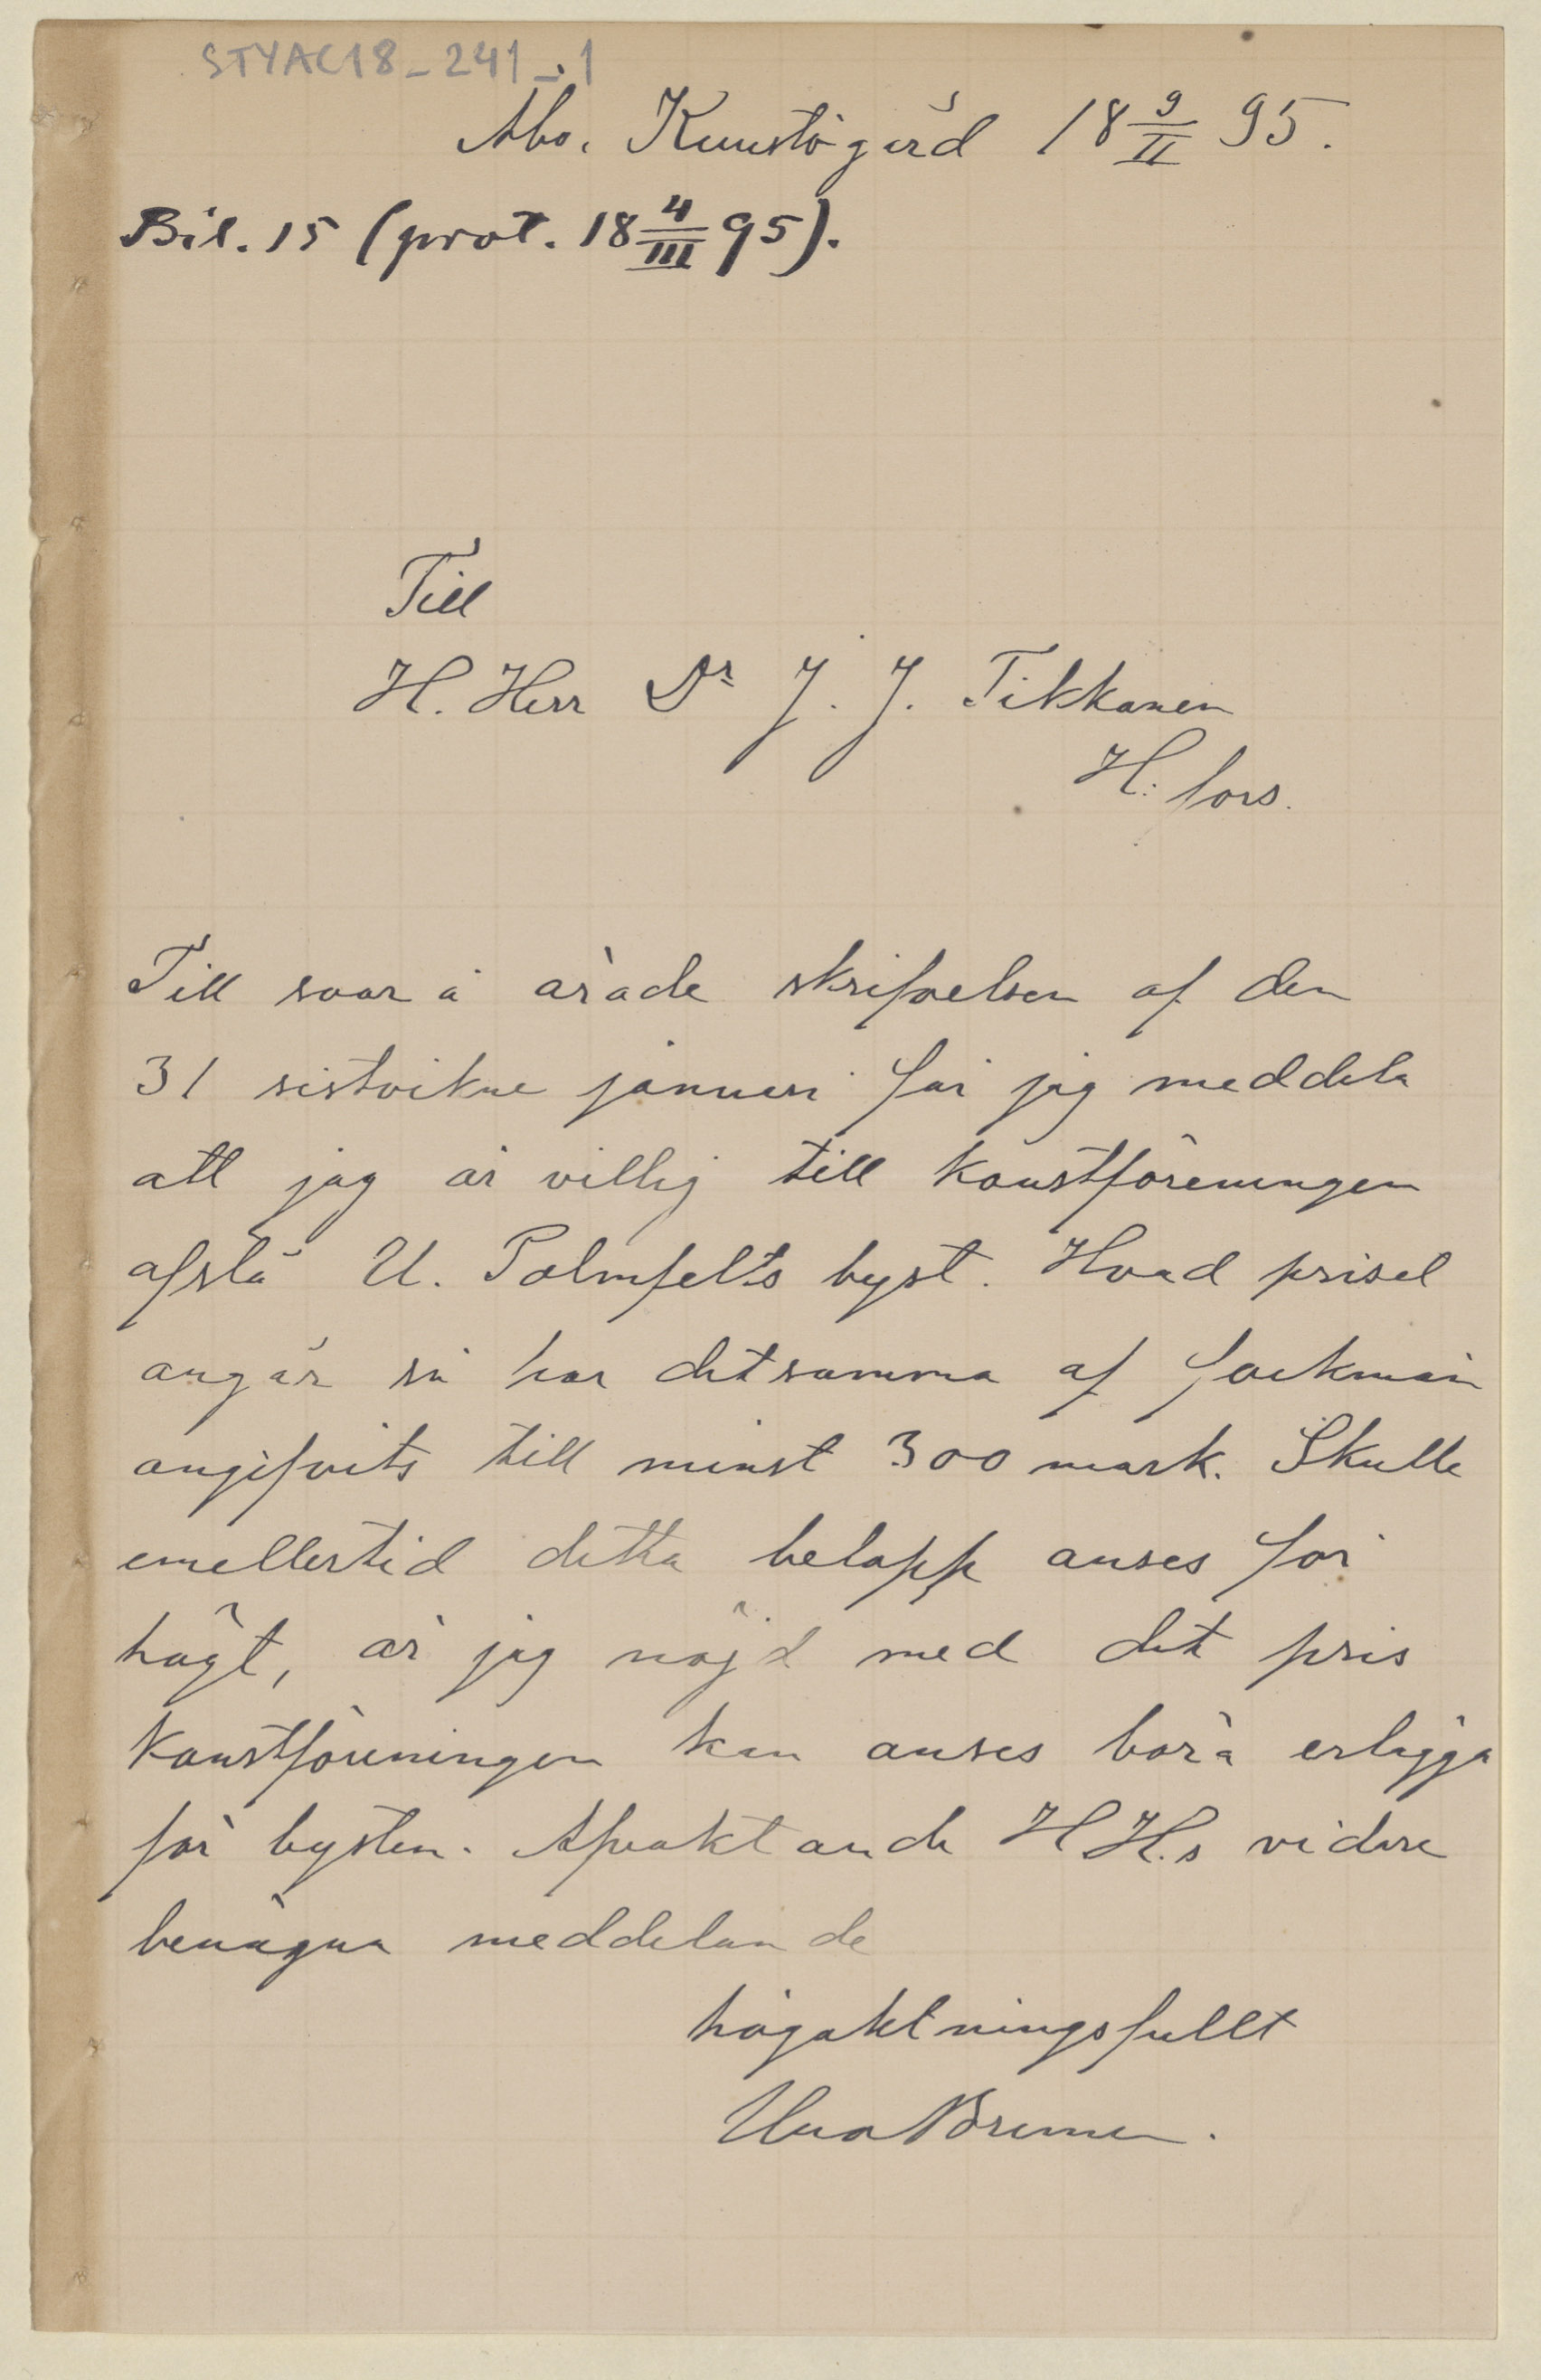 STYAC18_241_1
Åbo, Kunstögård 18 9/II 95.
Bil. 15 (prot. 18 4/III 95).
Till
H. Herr Dr J. J. Tikkanen
H:fors.
Till svar å ärade skrifvelsen af den
31 sistvikne januari får jag meddela
att jag är villig till Konstföreningen
afstå U. Palmfelts byst. Hvad priset
angår så har detsamma af fackmän
angifvits till minst 300 mark. Skulle
emellertid detta belopp anses för
högt, är jag nöjd med det pris
Konstföreningen kan anses böra erlägga
för bysten. Afvaktande H H.s vidare
benägna meddelande
högaktningsfullt